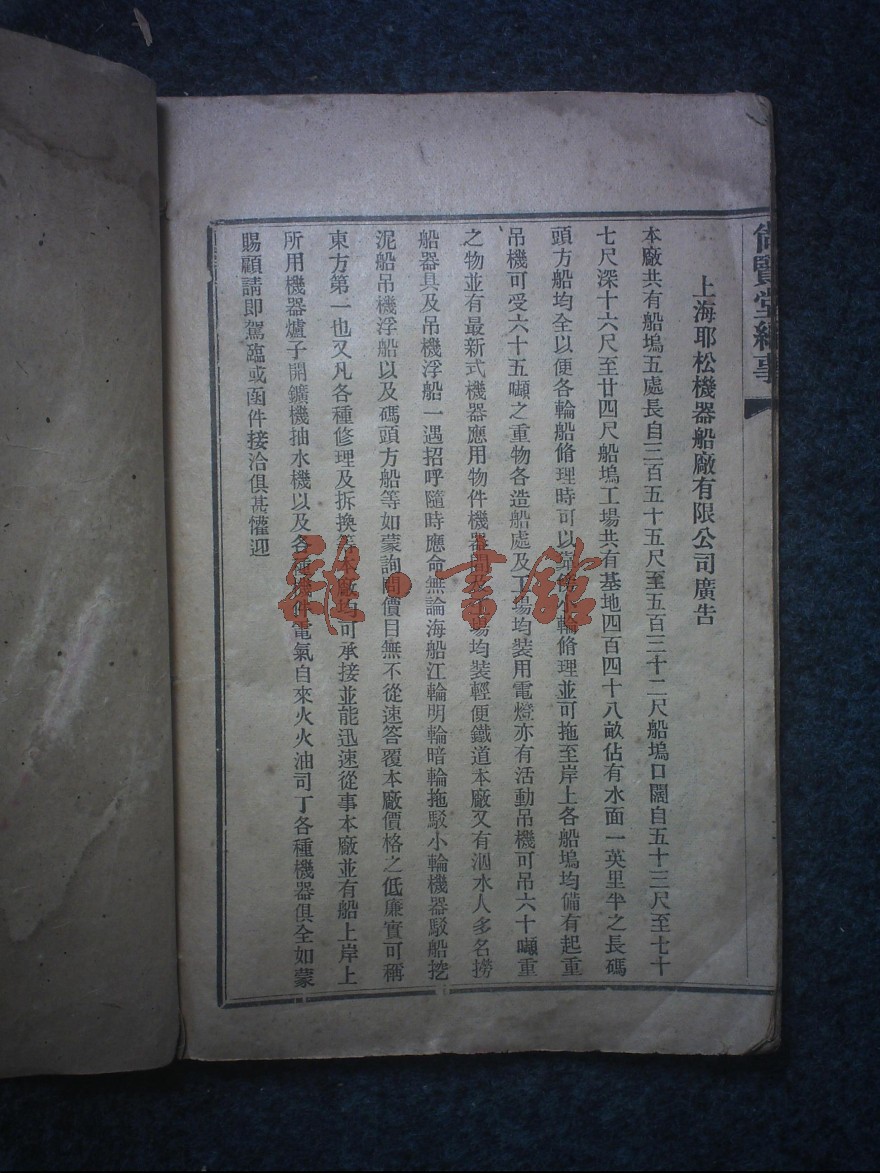 尚賢堂紀事
上海耶松機器船廠有限公司廣告
本廠共有船塢五處長自三百五十五尺至五百三十二尺船塢口闊自五十三尺至七十
七尺深十六尺至廿四尺船塢工場共有基地四百四十八畝佔有水面一英里半之長碼
頭方船均全以便各輪船脩理時可以小輪脩理並可拖至岸上各船塢均備有起重
吊機可受六十五噸之重物各造船處及工場均裝用電燈亦有活動吊機可吊六十噸重
之物並有最新式機器應用物件機器間及工場均裝輕便鐵道本廠又有泅水人多名撈
船器具及吊機浮船一遇招呼隨時應命無論海船江輪明輪暗輪拖駁小輪機器駁船挖
泥船吊機浮船以及碼頭方船等如蒙詢問價目無不從速答覆本廠價格之低廉實可稱
東方第一也又凡各種修理及拆換等本廠均可承接並能迅速從事本廠並有船上岸上
所用機器爐子開鑛機抽水機以及各種機件電氣自來火火油司丁各種機器俱全如蒙
賜顧請即駕臨或函件接洽俱甚懽迎
雜·書館